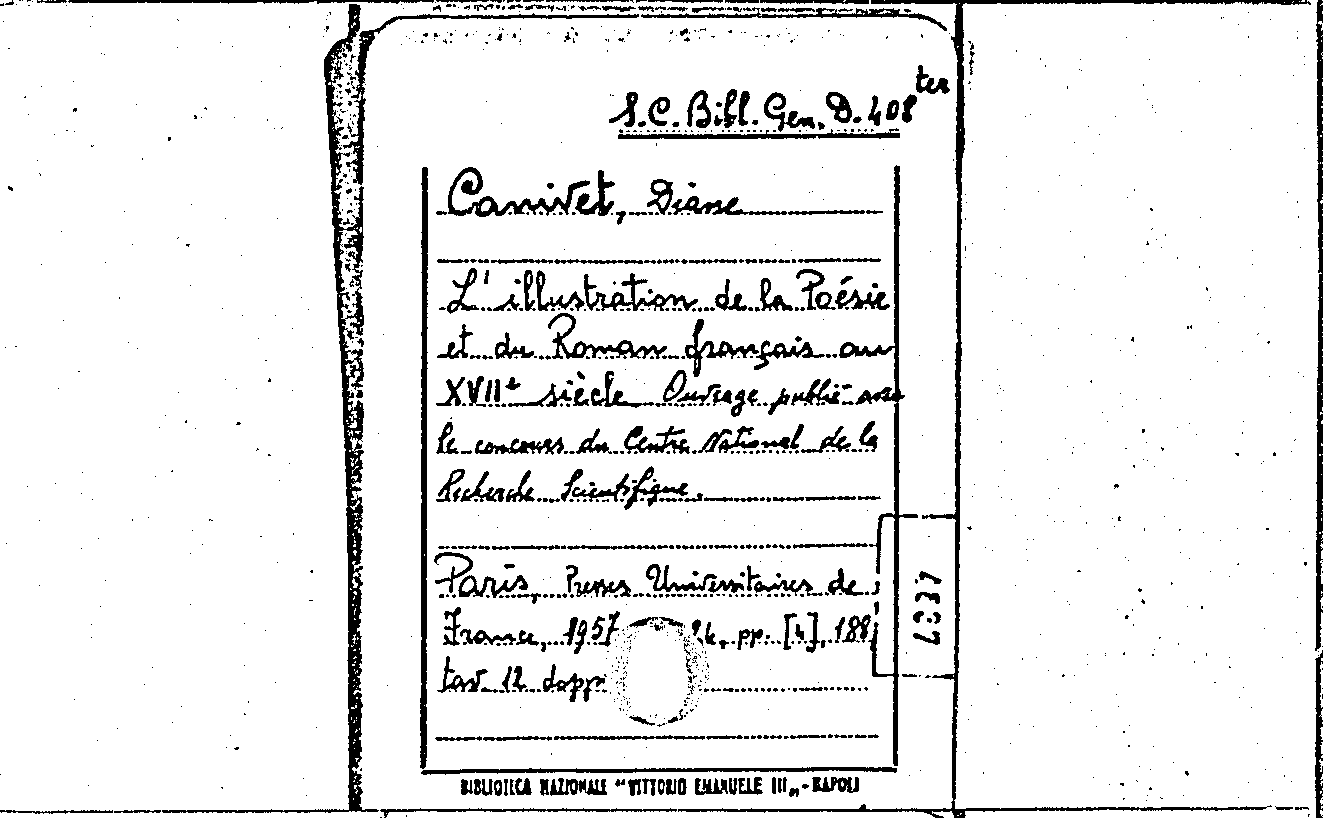 S.C. Bibl. Gen. D. 408 ter
Canivet, Diane
L'illustration de la Poésie
et du Roman français au
XVIIe siècle Ouvrage publié avec
le concours du Centre National de la
Recherche Scientifique.
Paris, Presses Universitaires de
France, 1957 24, pp. [4], 188,
tav. 12 dopp
BIBLIOTECA NAZIONALE "VITTORIO EMANUELE III" - NAPOLI